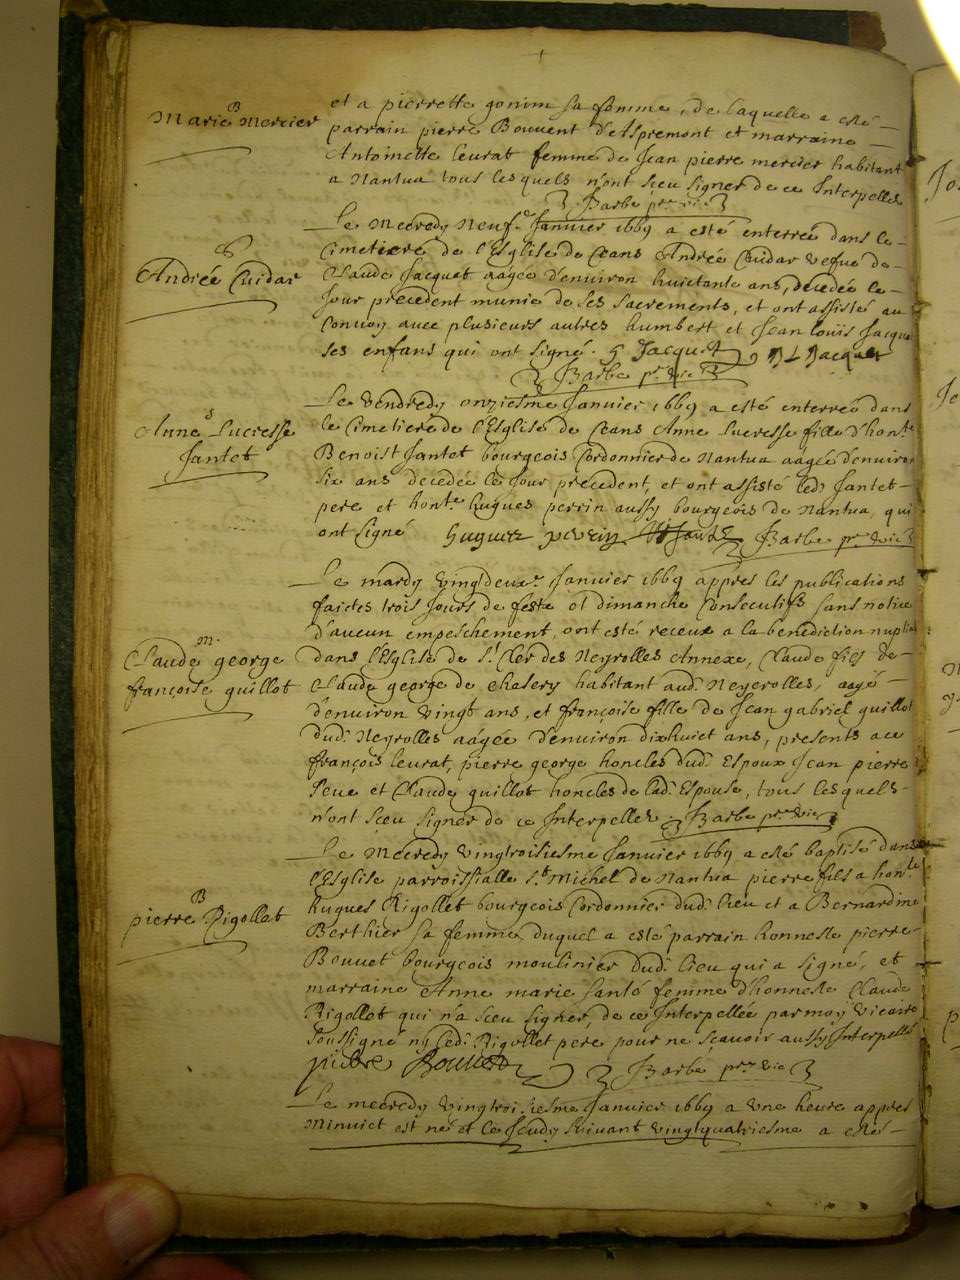 B
Marie Mercier
et a pierrette gonin sa femme, de laquelle a esté
parrain pierre Bouvent d'Aspremont et marraine
Antoinette leurat femme de Jean pierre mercier habitant
a Nantua tous lesquels n'ont sceu signer de ce Interpelles
Barbe pre vic
S
Andrée Cuidar
Le Mecredy Neufe Janvier 1669 a esté enterrée dans le
Cimetiere de l'Esglise de Ceans Andrée Cuidar vefue de
Claude Jacquet aagée d'environ huictante ans, decedée le
Jour precedent munie de ses sacrements, et ont assisté au
Convoy avec plusieurs autres humbert et Jean louis Jacque
ses enfans qui ont signé. h Jacquet J L Jacquet
Barbe pr. vic
S
Anne Lucresse
Jantet
Le vendredy onziesme Janvier 1669 a esté enterrée dans
le Cimetiere de l'Esglise de Ceans Anne Lucresse fille d'honte
Benoist Jantet bourgeois Cordonnier de Nantua aagée d'environ
six ans decedée le Jour precedent, et ont assisté led. Jantet
pere et honte hugues perrin aussy bourgeois de Nantua, qui
ont signé hugues perrin B Jantet Barbe pr. vic
M.
Claude george
françoise guillot
Le mardy vingtdeuxe Janvier 1669 appres les publications
faictes trois Jours de feste et dimanche Consecutifs sans notice
d'aucun empeschement, ont esté receux a la benediction nuptia
dans l'Esglise de St Cler des Neyrolles Annexe, Claude fils de
Claude george de Chesery habitant aud. Neyerolles, aagé
d'environ vingt ans, et françoise fille de Jean gabriel guillot
dud. Neyrolles aagée d'environ dixhuict ans, presents a ce
françois leurat, pierre george honcles dud. Espoux Jean pierre
et Claude guillot honcles de lad. Espouse, tous lesquels
n'ont sceu signer de ce Interpelles. Barbe pre vic
B
pierre Rigollet
Le Mecredy vingtroisiesme Janvier 1669 a esté baptisé dans
l'Esglise parroissialle St Michel de Nantua pierre fils a honle
hugues Rigollet bourgeois Cordonnier dud. lieu et a Bernardine
Berthier sa femme duquel a esté parrain honneste pierre
Bouvet bourgeois moulinier dud. lieu qui a signé, et
marraine Anne marie santé femme d'honneste Claude
Rigollet qui n'a sceu signer, de ce Interpellée par moy vicaire
soussigné ny led. Rigollet pere pour ne sçavoir aussy Interpellé
pierre Bouvet Barbe pre vic
Le mecredy vingtroisiesme Janvier 1669 a une heure appres
Minuict est né et le Jeudy suivant vingtquatriesme a esté